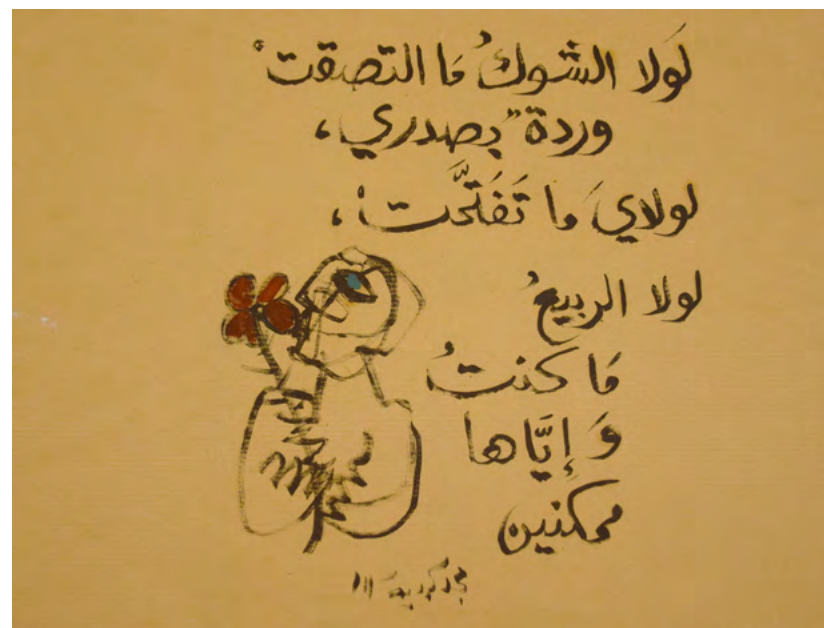 لَولا الشوكُ مَا التصقتْ
وردةٌ بِصدري،
لولايَ ما تَفَتَّحتْ،
لولا الربيعُ
مَا كنتُ
وَ إِيَّاها
ممكنين